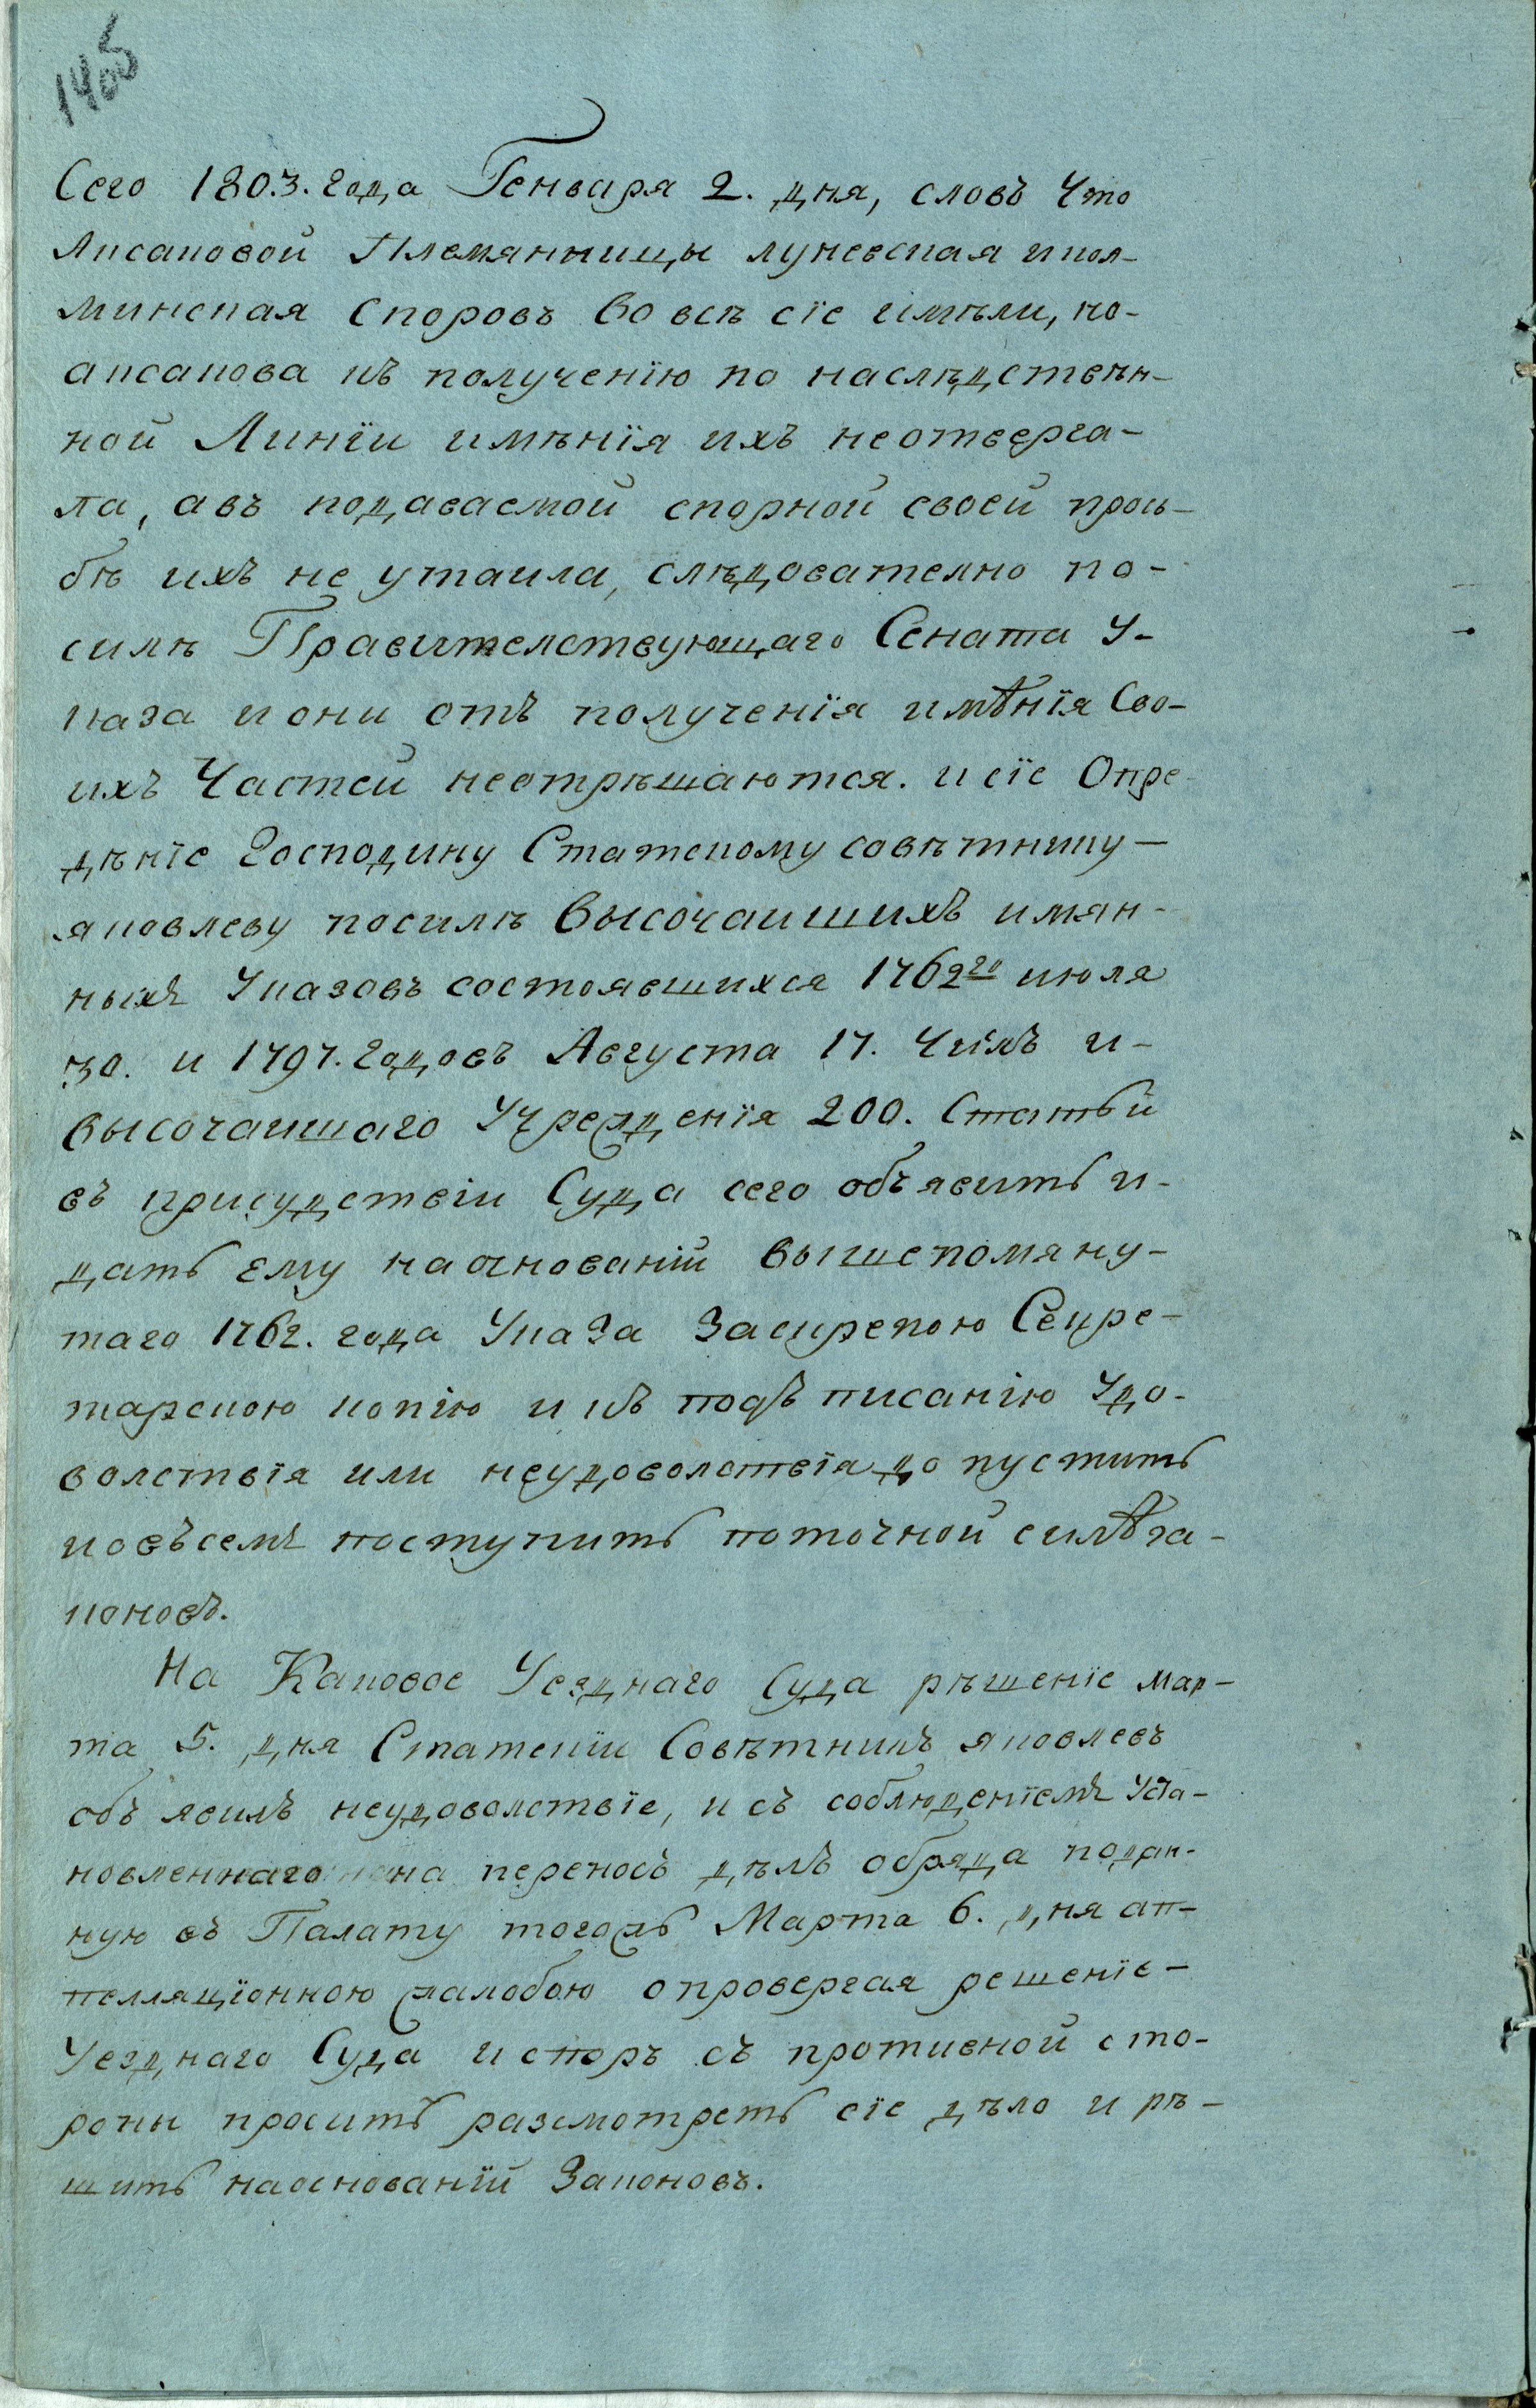 1405
Сего 1803. года Генваря 2. дня, словъ Что
Аксаковой Племянницы лунѣвская и кол-
минская Споровъ во всѣ сїе имѣли, но-
аксакова къ полученїю по наслѣдственн-
ной Линїи имѣнїя ихъ неотверга-
ла, авъ подаваемой спорной своей прозь-
бѣ ихъ не утаила, слѣдователно по-
силѣ Правителствующаго Сената У-
каза и они отъ полученїя имѣнїя Сво-
ихъ Частей неотрѣшаются. и сїе Опре-
дѣнїе Господину Статскому совѣтнику-
яковлеву посилѣ Высочаишихъ имян-
ныхъ Указовъ состоявшихся 1762го июля
30. и 1797. годовъ Августа 17. Чиілъ и-
высочаишаго Учрежденїя 200. Статьи
въ присудствїи Суда сего объявить и-
дать ему наоснованїи вышепомяну-
таго 1762. года Указа За скрепою Секре-
тарскою копїю и къ подъписанїю Удо-
волствїя или неудоволствїя до пустить
и овъсемъ поступить поточной силѣ за-
коновъ.
На Каковое Уезднаго Суда рѣшенїе мар-
та 5. дня Статскїи Совѣтникъ яковлевъ
объ явилъ неудоволствїе, и съ соблюденїемъ Уста-
новленнаго на переносъ дѣлъ обряда подан-
ную въ Палату тогожъ Марта 6. дня ап-
пелляцїонною жалобою опровергая решенїе-
Уезднаго Суда и споръ съ противной сто-
роны проситъ разсмотреть сїе дѣло и рѣ-
шить наоснованїи Законовъ.